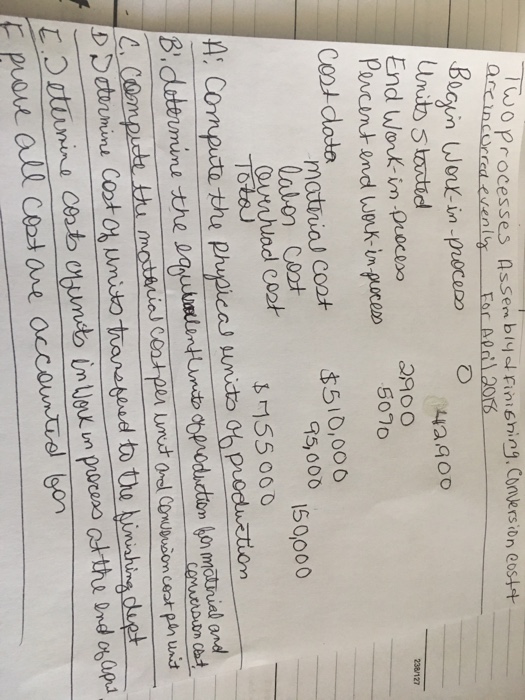 Two processes Assembly & Finishing. Conversion cost
are incurred evenly For April 2018
Begin Work-in-process 0
Units Started 42900
End Work-in-process 2900
Percent end work-in-process 50%
Cost data material cost $510,000
labor cost 95,000
overhead cost 150,000
Total $755000
A: Compute the physical units of production
B: determine the equivalent units of production for material and conversion cost,
C. Compute the material cost per unit and conversion cost per unit
D Determine Cost of units transfered to the finishing dept
E. Determine costs of units in Work in process at the end of April
F prove all cost are accounted for
238/127